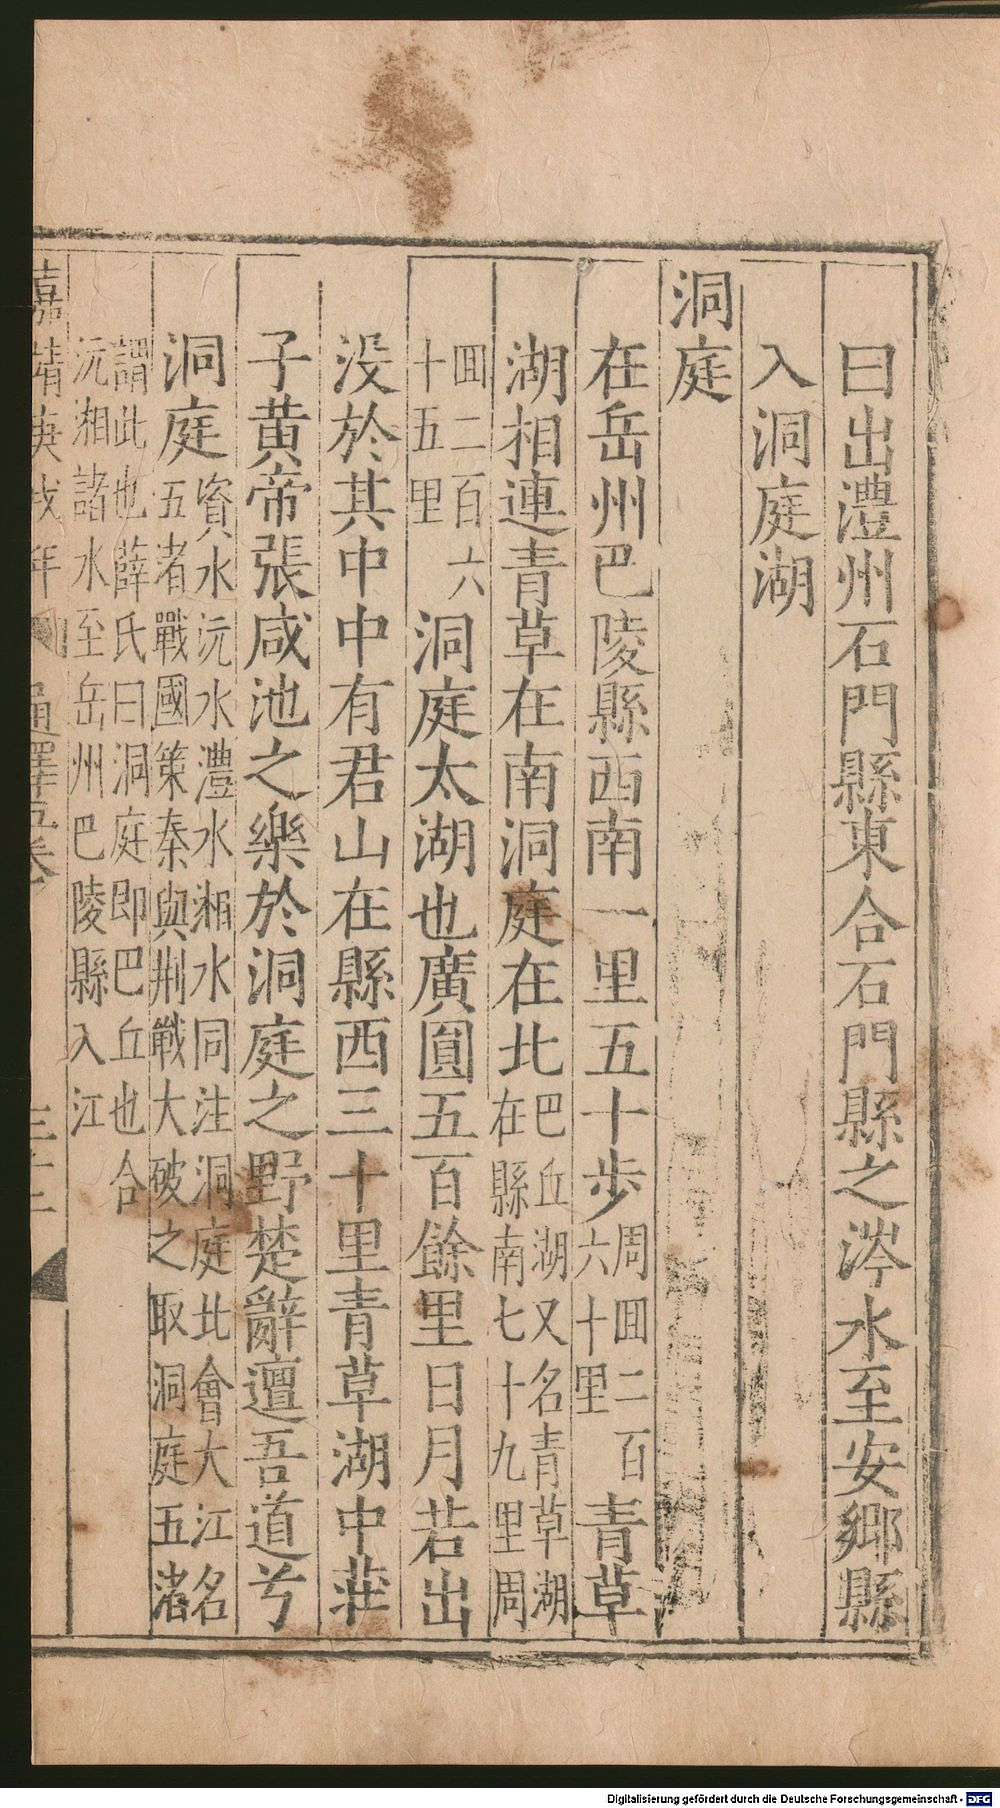 曰出澧州石門縣東合石門縣之涔水至安鄉縣
入洞庭湖
洞庭
在岳州巴陵縣西南一里五十步周回二百六十里青草
湖相連青草在南洞庭在北巴丘湖又名青草湖在縣南七十九里周
回二百六十五里洞庭太湖也廣圓五百餘里日月若出
没於其中中有君山在縣西三十里青草湖中莊
子黄帝張咸池之樂於洞庭之野楚辭邅吾道兮
洞庭資水沅水澧水湘水同注洞庭北會大江名五渚戰國策秦與荆戰大破之取洞庭五渚
謂此也薛氏曰洞庭即巴丘也合沅湘諸水至岳州巴陵縣入江
嘉靖庚戌年 通釋五卷 三十二
Digitalisierung gefördert durch die Deutsche Forschungsgemeinschaft - DFG